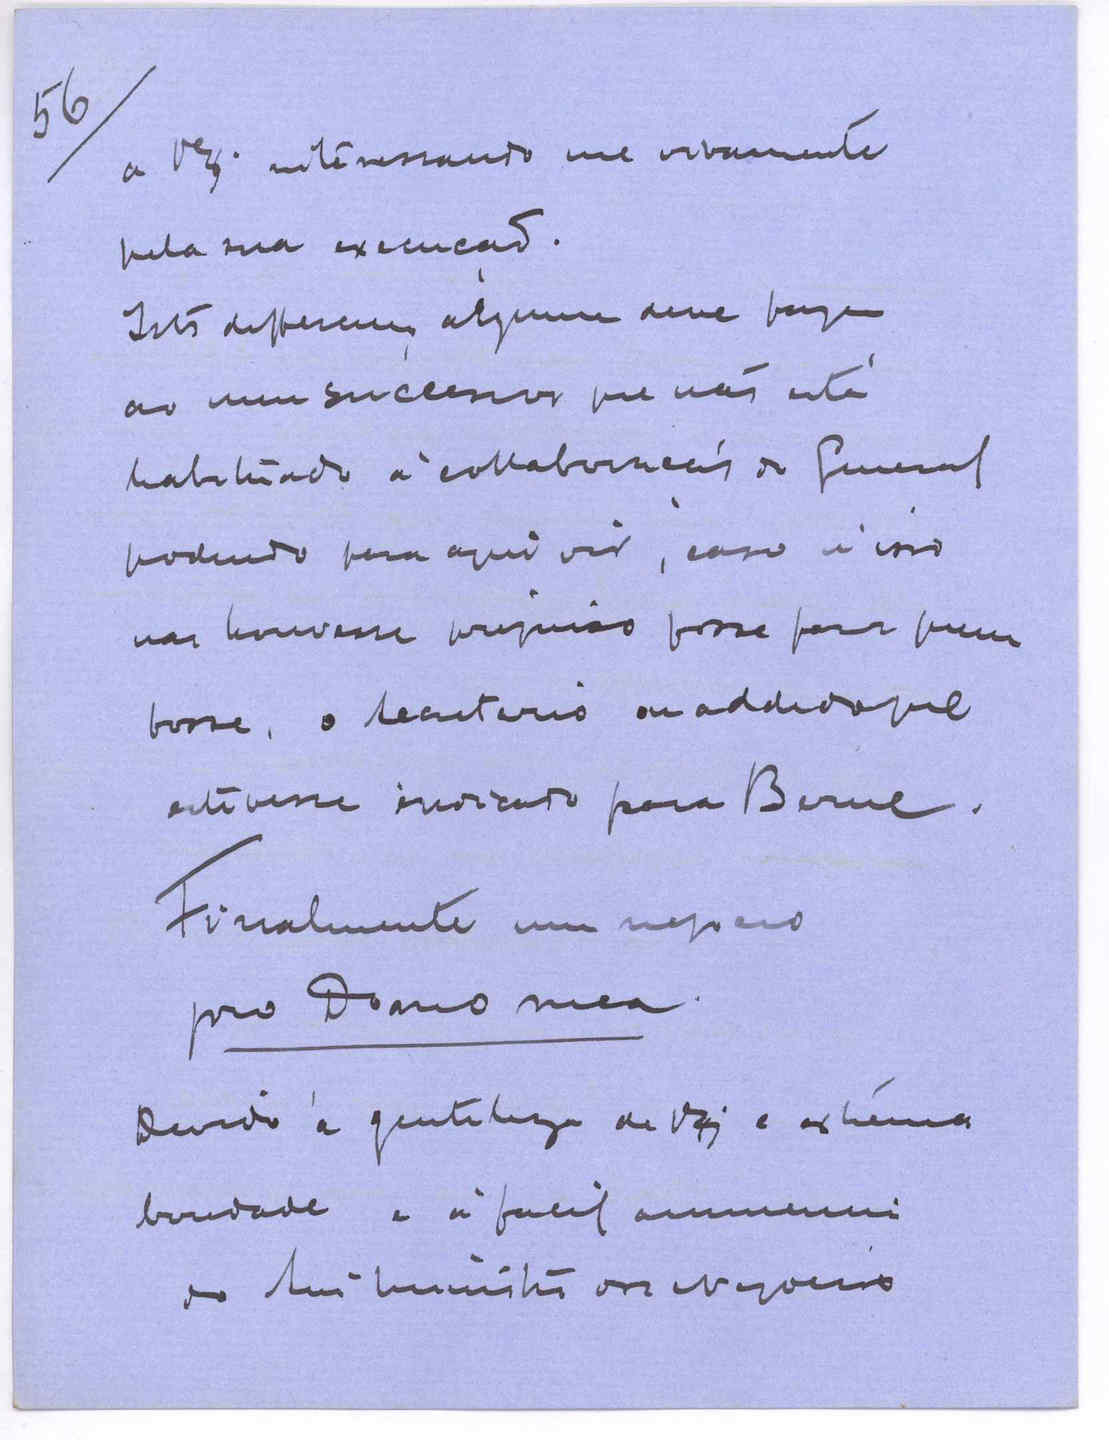 56
a VEx. interessando me vivamente
pela sua execução.
Isto differença alguma deve fazer
ao meu successor que não está
habituado á collaboração do General
podendo para aqui vir, caso n'isso
não houvesse prejuizo fosse para quem
fosse, o Secretario ou addido que
estivesse indicado para Berne.
Finalmente um negocio
pro Domo mea.
Devido á gentileza de VEx e extrema
bondade e á facil
do Sr. Ministro dos Negocios